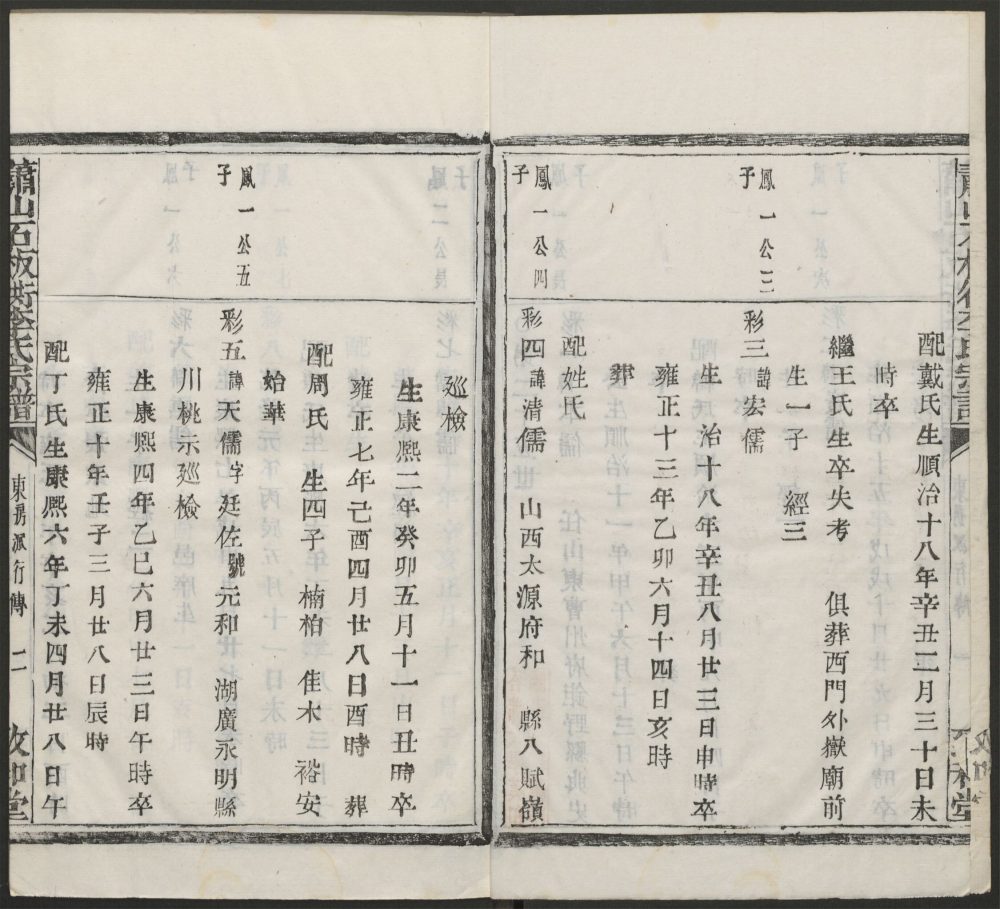 配戴氏生順治十八年辛丑二月三十日未
時卒
繼王氏生卒失考 俱葬西門外嶽廟前
生一子 經三
鳳一公三子
彩三諱宏儒
生順治十八年辛丑八月廿三日申時卒
雍正十三年乙卯六月十四日亥時
葬
配姓氏
鳳一公四子
彩四諱清儒 山西太源府和 縣八賦嶺
蕭山石板街李氏宗譜
東房派行傳
巡檢
生康熙二年癸卯五月十一日丑時卒
雍正七年己酉四月廿八日酉時 葬
配周氏 生四子 楠柏 佳木 裕安
始華
鳳一公五子
彩五諱天儒字廷佐號元和 湖廣永明縣
川桃示巡檢
生康熙四年乙巳六月廿三日午時卒
雍正十年壬子三月廿八日辰時
配丁氏生康熙六年丁未四月廿八日午
蕭山石板街李氏宗譜 東房派行傳